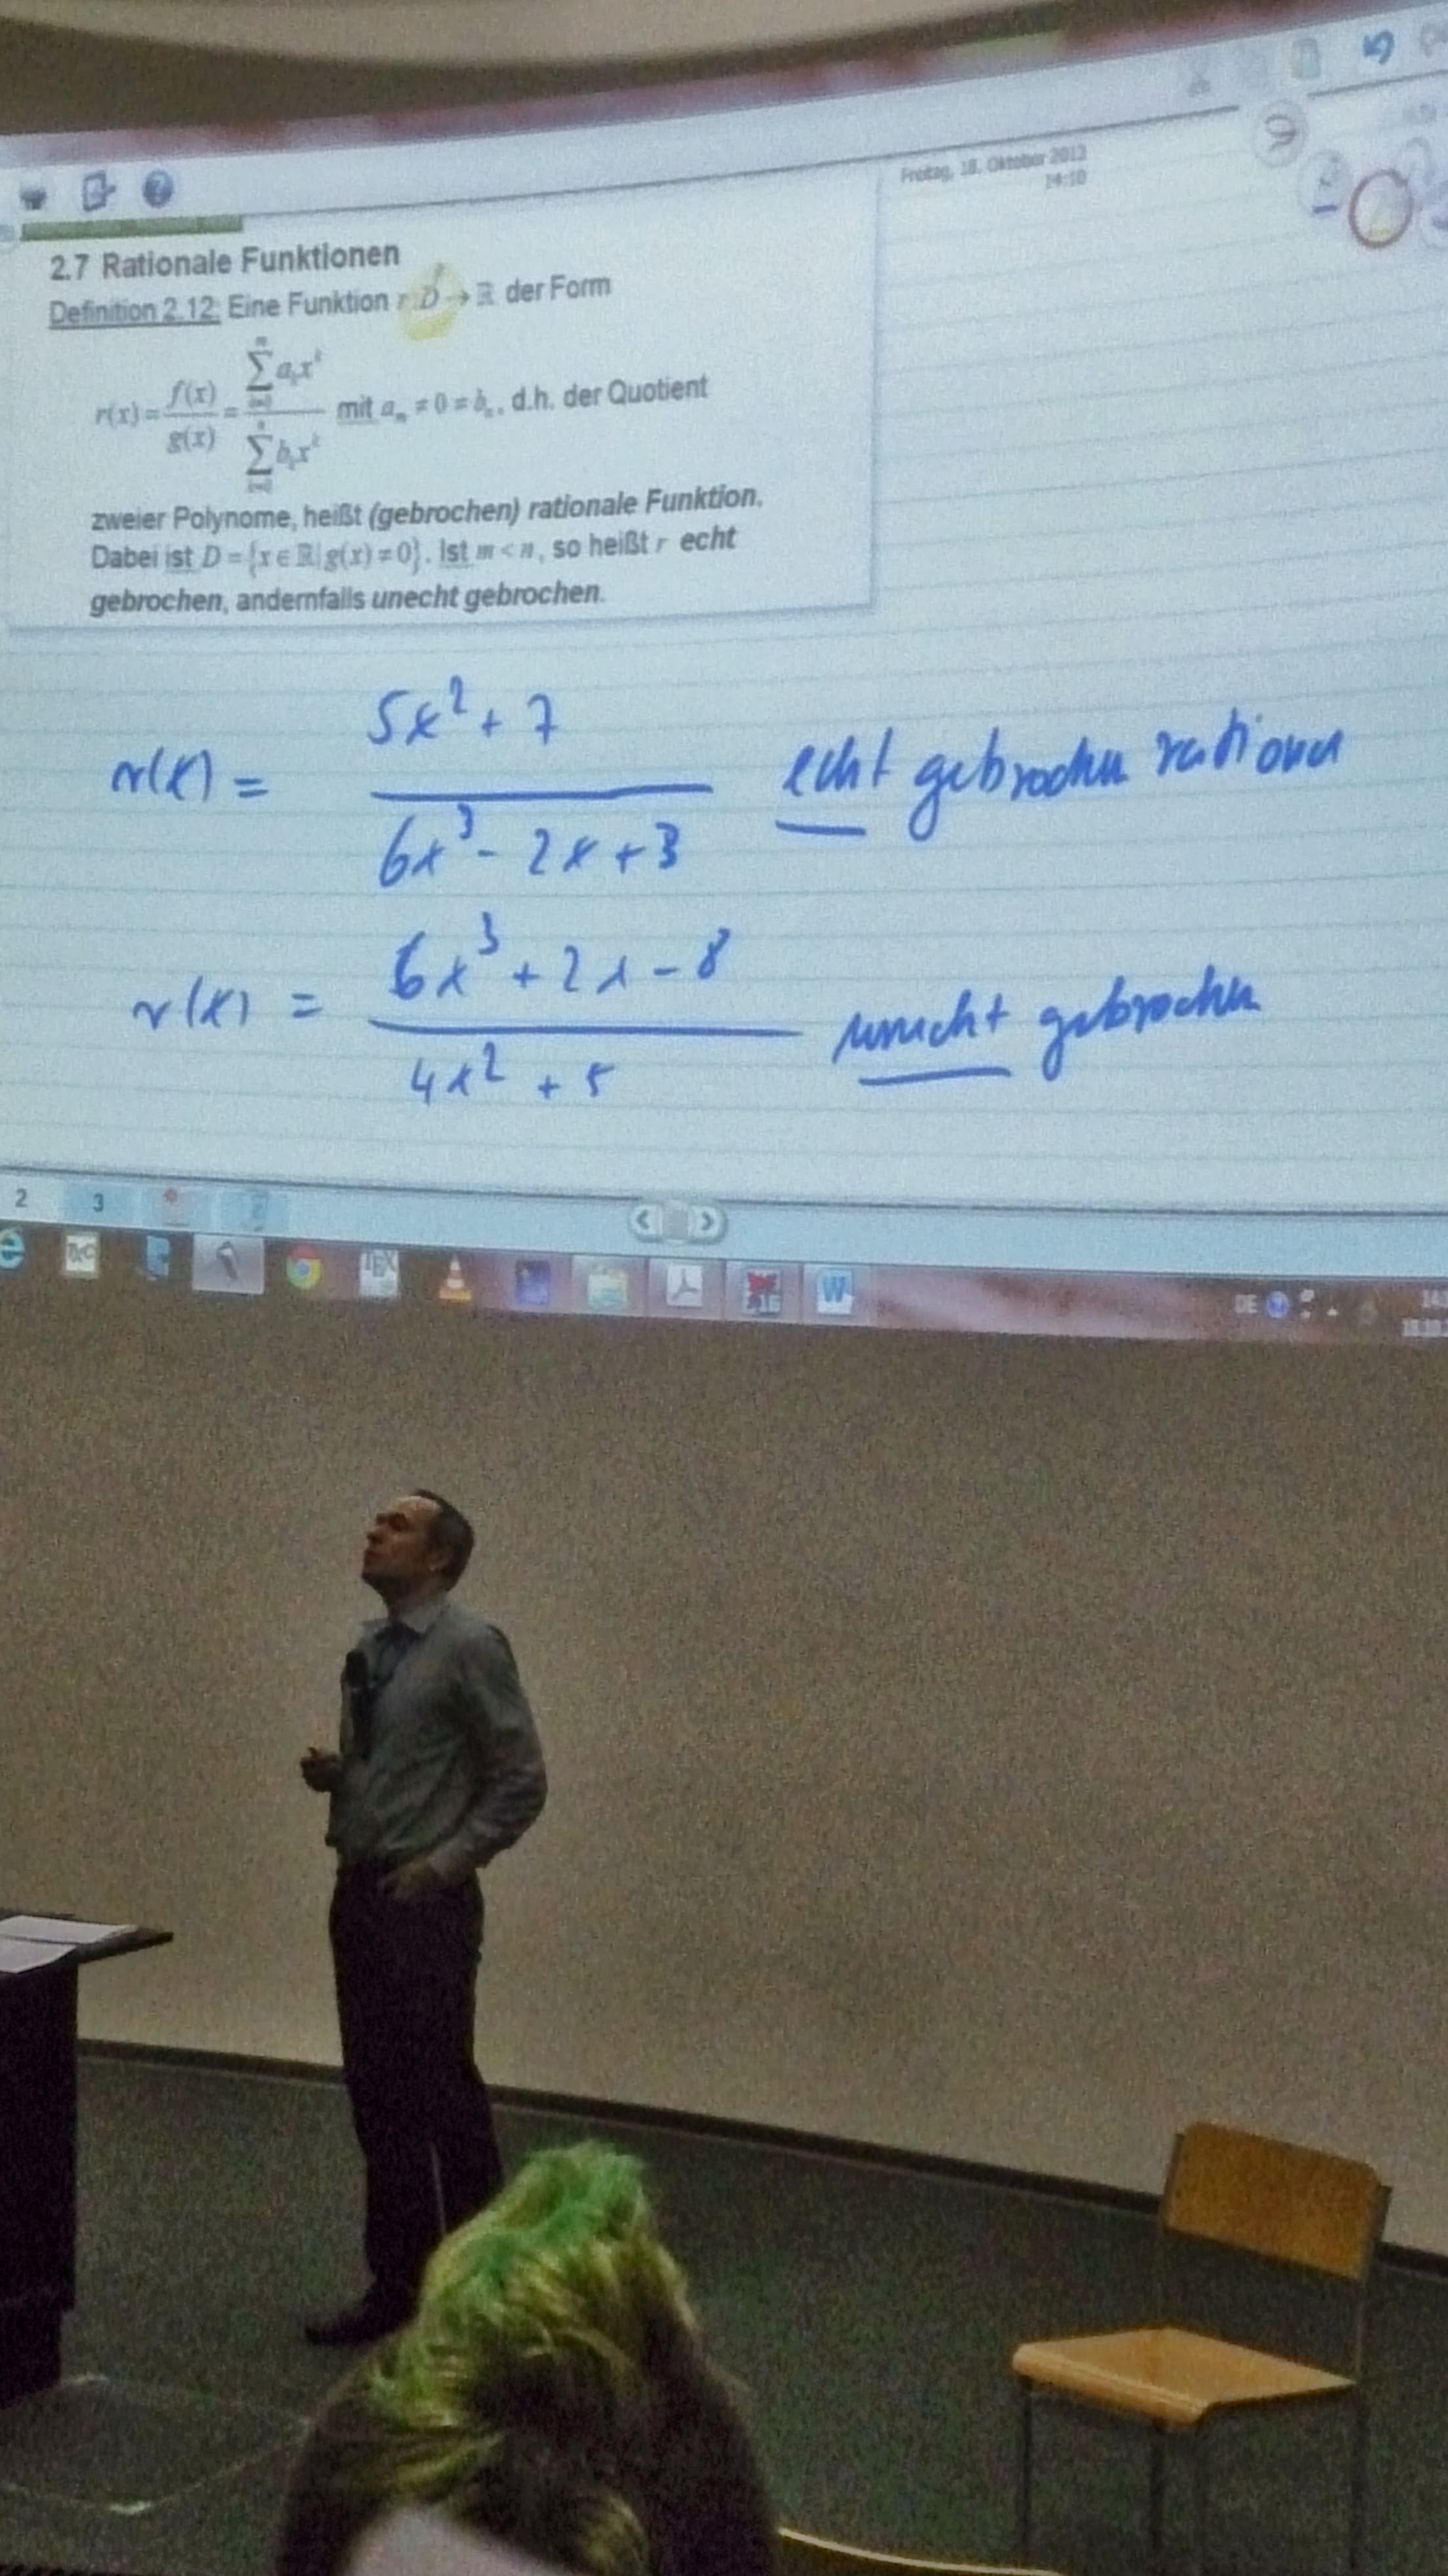 Freitag, 18. Oktober 2013
14:10
2.7 Rationale Funktionen
Definition 2.12: Eine Funktion r: D → ℝ der Form
r(x) = f(x) / g(x) = ∑ aₖxᵏ / ∑ bₖxᵏ mit aₘ ≠ 0 = bₙ, d.h. der Quotient
zweier Polynome, heißt (gebrochen) rationale Funktion.
Dabei ist D = {x ∈ ℝ | g(x) ≠ 0}. Ist m < n, so heißt r echt
gebrochen, andernfalls unecht gebrochen.
r(x) = (5x² + 7) / (6x³ - 2x + 3) echt gebrochen rational
r(x) = (6x³ + 2x - 8) / (4x² + 5) unecht gebrochen
2 3
W
DE